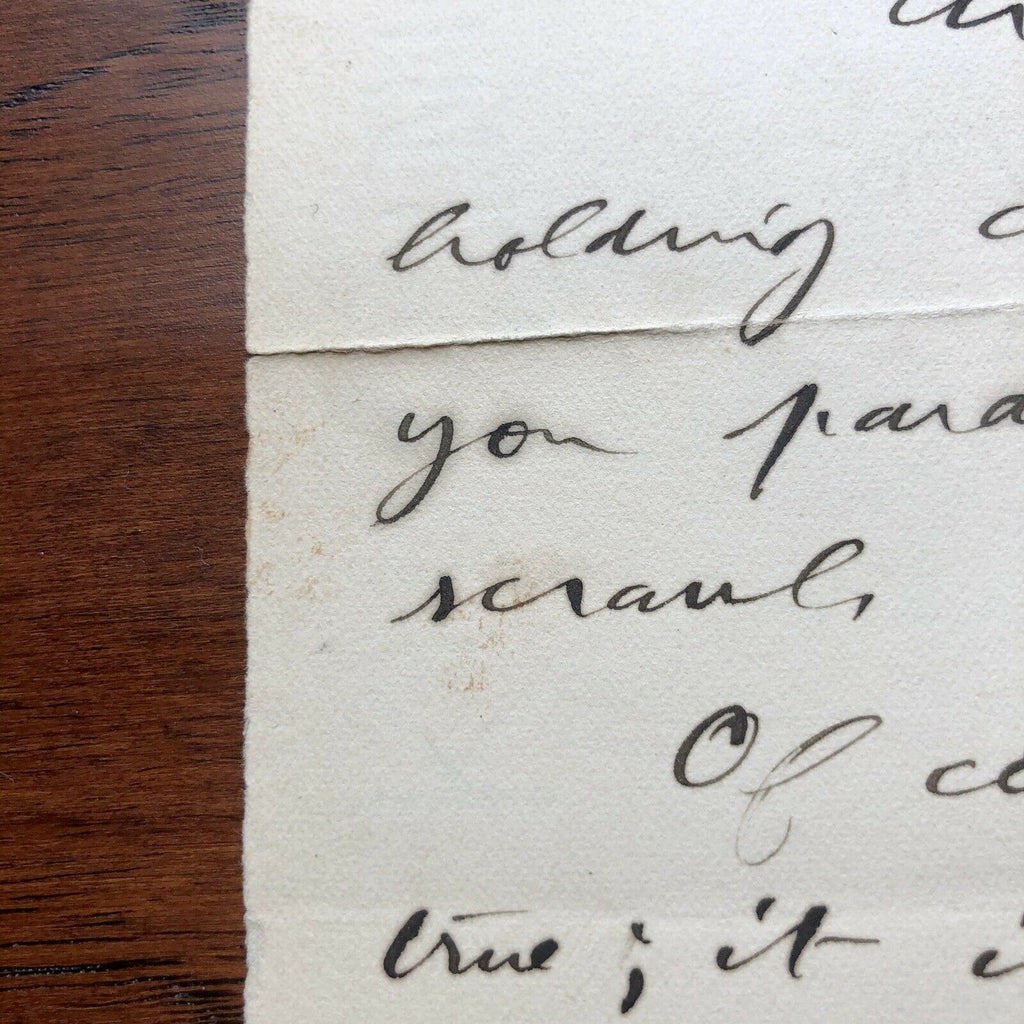 holding
you para
scrawl.
Of co
true; it i